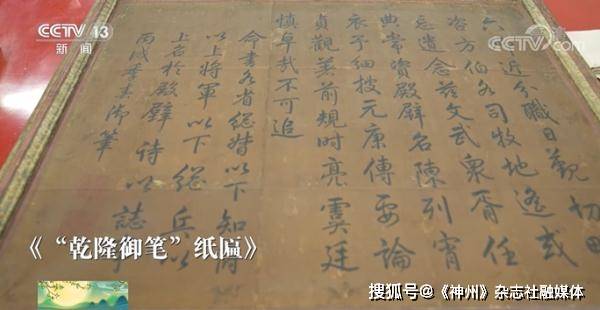 CCTV 13
新闻
CCTV.com
切
近分職日觀
咨方伯司牧地遙或
遺念兹文武衆胥任
典常資殿壁名陳列宵
衣予細披元康傳要論
貞觀善前規時亮虞廷
慎卓哉不可追
命書各省總督以下知府
以上將軍以下總兵以
上名於殿壁詩以誌事
丙戌季春御筆
《“乾隆御笔”纸匾》
搜狐号@《神州》杂志社融媒体